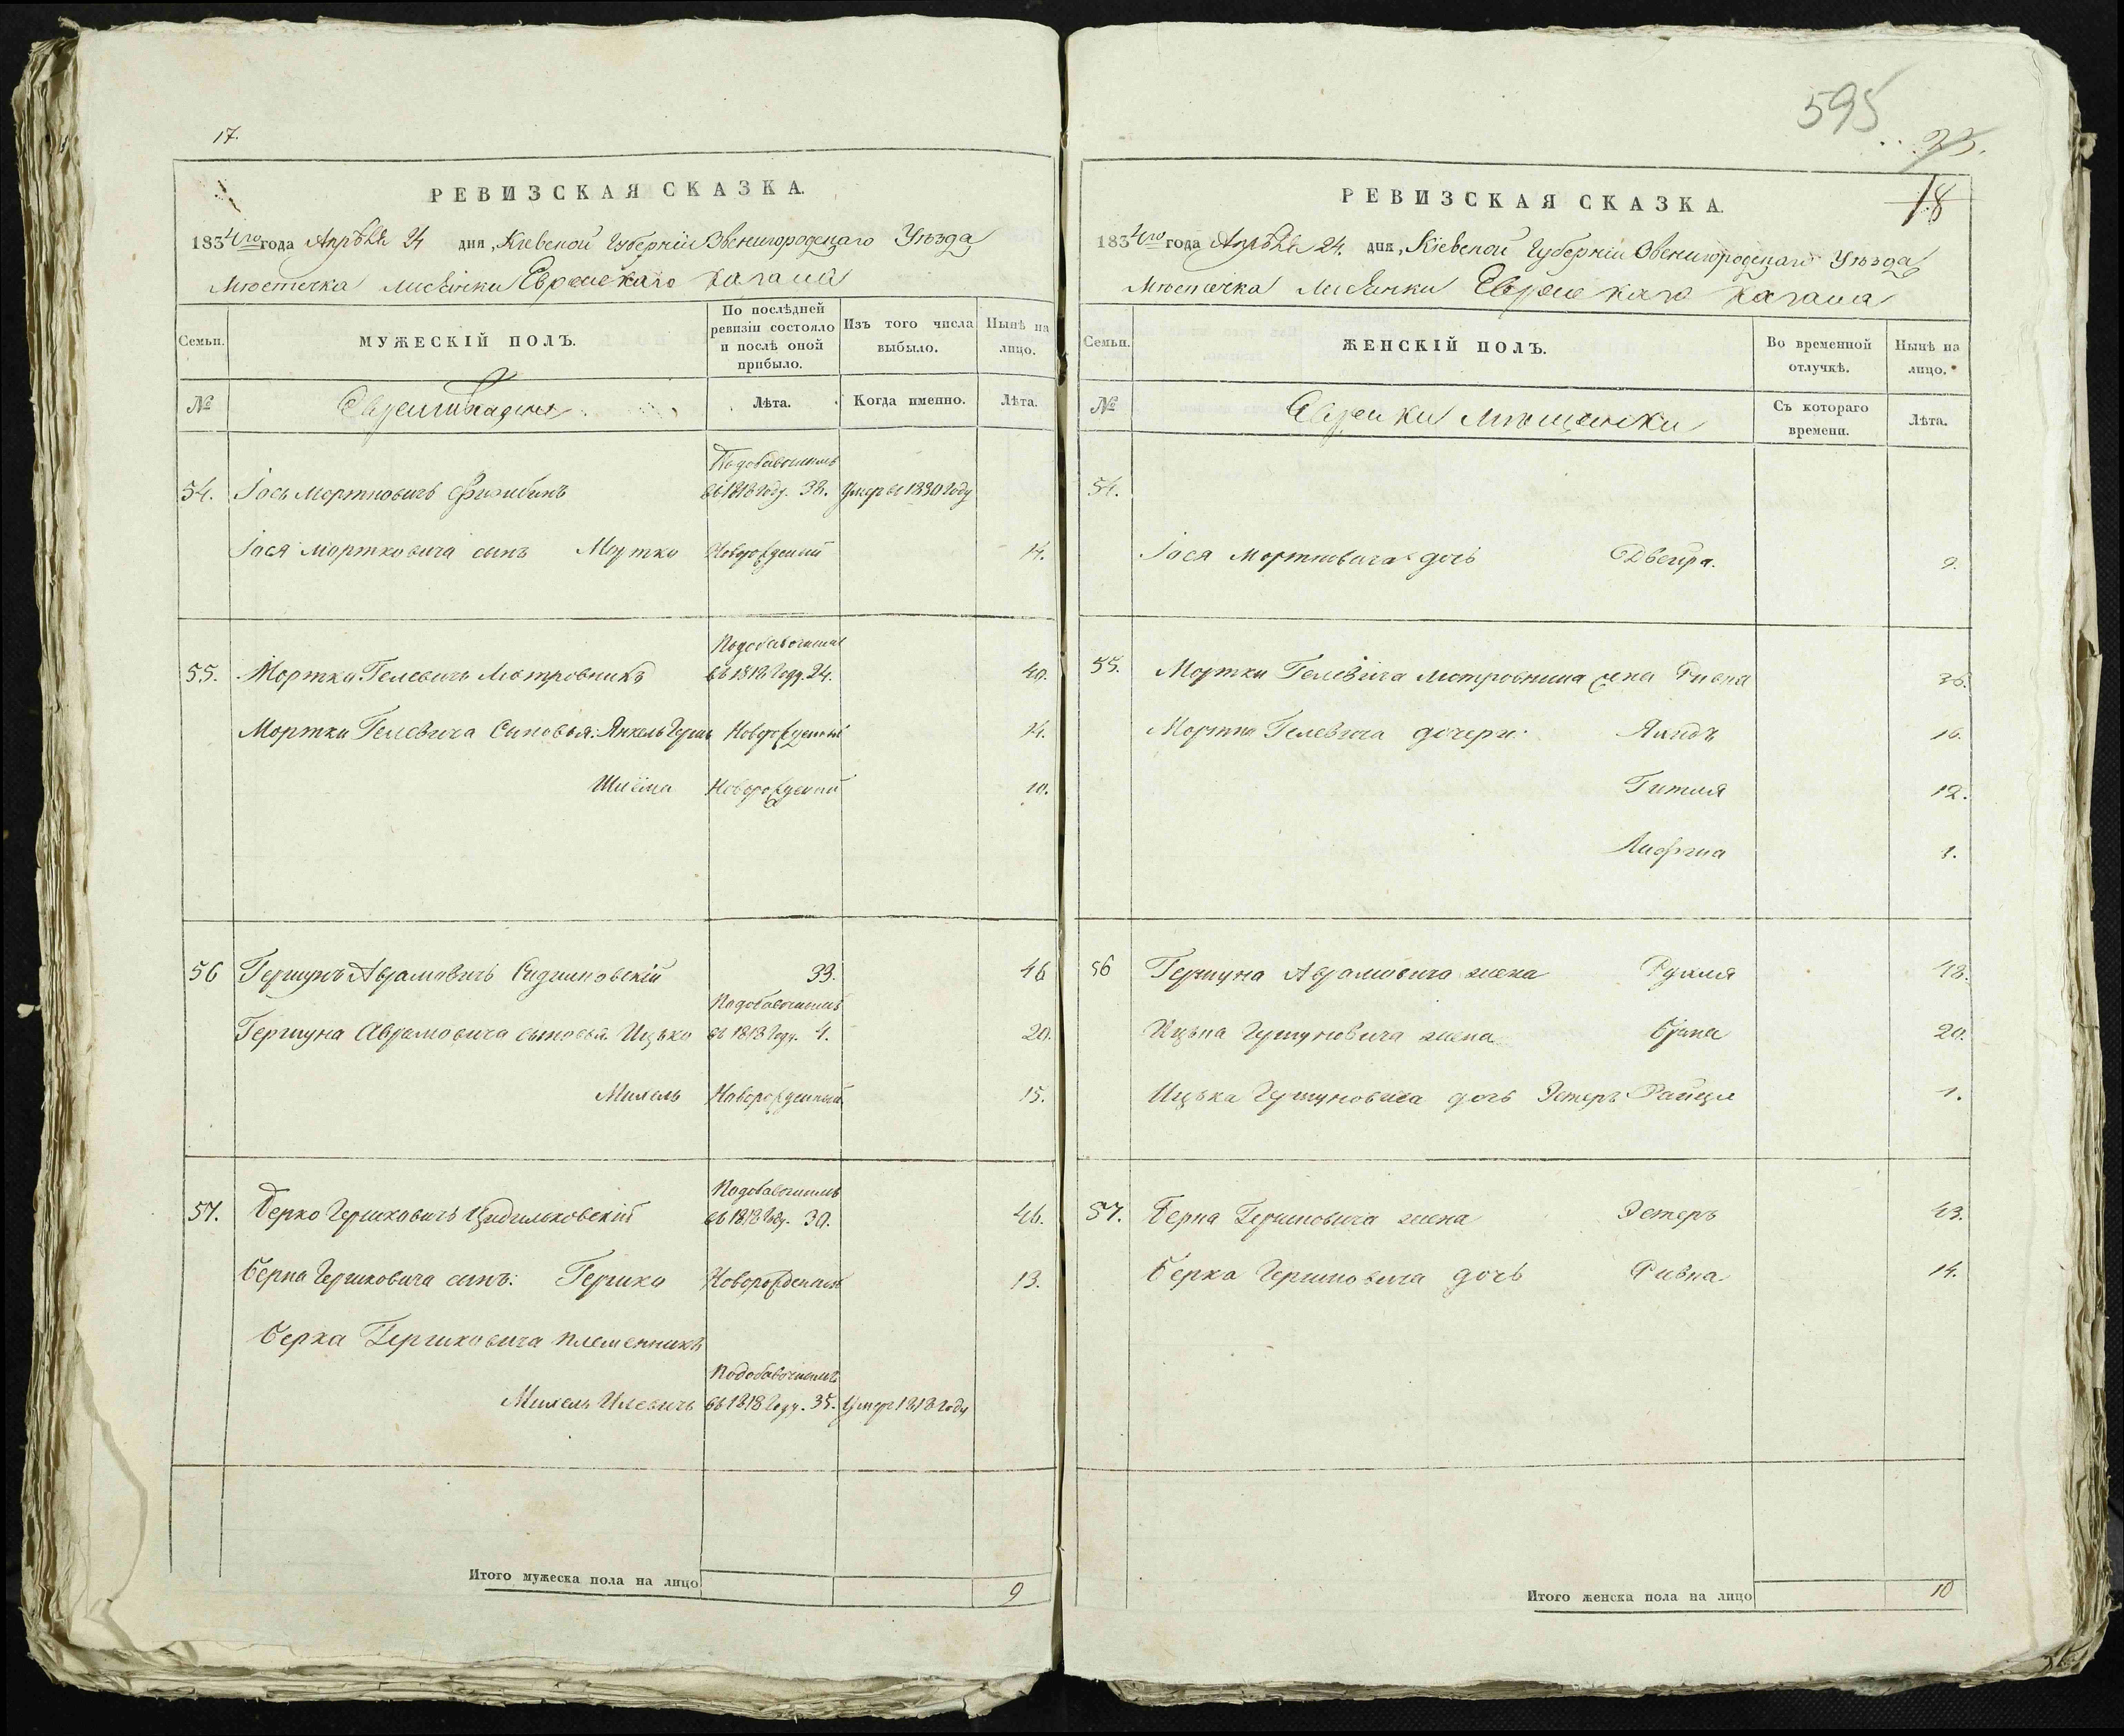 17.
РЕВИЗСКАЯ СКАЗКА.
1834го года Апрѣля 24 дня, Кіевской Губерніи Звенигородскаго Уѣзда
Мѣстечка Лисянки Еврейскаго Кагала
Семьи.
МУЖЕСКІЙ ПОЛЪ.
По послѣдней ревизіи состояло и послѣ оной прибыло.
Изъ того числа выбыло.
Нынѣ на лицо.
№
Лѣта.
Когда именно.
Лѣта.
Подобавочнымъ
54. Іось Мортковичъ въ 1818 году. 32. Умеръ въ 1830 году
Іося Мортковича сынъ Мутко Новорожденный 14.
Подобавочнымъ
55. Мортко Гелевичъ Мотровникъ въ 1818 году. 24. 40.
Мортки Гелевича Сыновья: Янкель Герш Новорожденный 14.
Шлёма Новорожденный 10.
56 Гершунъ Аврамовичъ 33. 46
Подобавочнымъ
Гершуна Аврамовича сыновья Ицько въ 1818 году. 4. 20.
Михель Новорожденный 15.
Подобавочнымъ
57. Берко Гершковичъ Цыдильковскій въ 1818 году. 30. 46.
Берка Гершковича сынъ: Гершко Новорожденный 13.
Берка Гершковича племенникъ
Подобавочнымъ
Михель Илевичъ въ 1818 году. 35. Умеръ 1818 году
Итого мужеска пола на лицо 9
595
23.
18
РЕВИЗСКАЯ СКАЗКА.
1834го года Апрѣля 24. дня, Кіевской Губерніи Звенигородскаго Уѣзда
Мѣстечка Лисянки Еврейскаго Кагала
Семьи.
ЖЕНСКІЙ ПОЛЪ.
Во временной отлучкѣ.
Нынѣ на лицо.
№
Еврейки мѣщанки
Съ котораго времени.
Лѣта.
54.
Іося Мортковича дочь Двейра. 9.
55. Мортки Гелевича Мотровника жена Ривка 36.
Мортки Гелевича дочери: 16.
Гитля 12.
1.
56 Гершуна Аврамовича жена Рухля 43.
Ицька Гершуновича жена 20.
Ицька Гершуновича дочь Эстеръ Райця 1.
57. Берка Гершковича жена Эстеръ 43.
Берка Гершковича дочь Ривка 14.
Итого женска пола на лицо 10